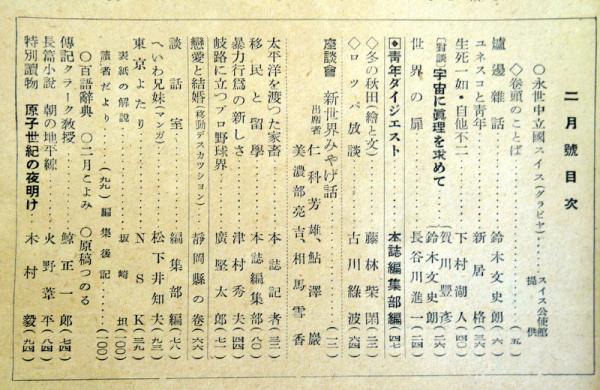 二月號目次
○永世中立國スイス(グラビヤ)……スイス公使館提供
◇卷頭のことば……(五)
爐邊雜話……鈴木文史朗(六)
ユネスコと青年……新居格(三六)
生死一如・自他不二……下村湖人(四〇)
〔對談〕宇宙に眞理を求めて……賀川豐彦 鈴木文史朗(二六)
世界の扉……長谷川進一(四四)
◆青年ダイジェスト……本誌編集部編(四七)
◇冬の秋田(繪と文)……藤林柴閑(二二)
◇ロッパ放談……古川綠波(六四)
座談會 新世界みやげ話……(一二)
出席者 仁科芳雄、鮎澤巖
美濃部亮吉、相馬雪香
太平洋を渡つた家畜……本誌記者(三二)
移民と留學……本誌編集部(八〇)
暴力行爲の新しさ……津村秀夫(四四)
岐路に立つプロ野球界……廣堅太郎(七一)
戀愛と結婚(移動デスカッション)……靜岡縣の卷(六六)
談話室……編集部編(七八)
へいわ兄妹(マンガ)……松下井知夫(九三)
東京だより……NSK(三九)
表紙の解説……坂崎坦(一〇〇)
讀者だより(九九) 編集後記……(一〇〇)
○百語辭典 ○二月こよみ ○原稿つのる
傳記クラーク敎授……鯨正一郎(七四)
長篇小説 朝の地平線……火野葦平(八四)
特別讀物 原子世紀の夜明け……木村毅(九四)